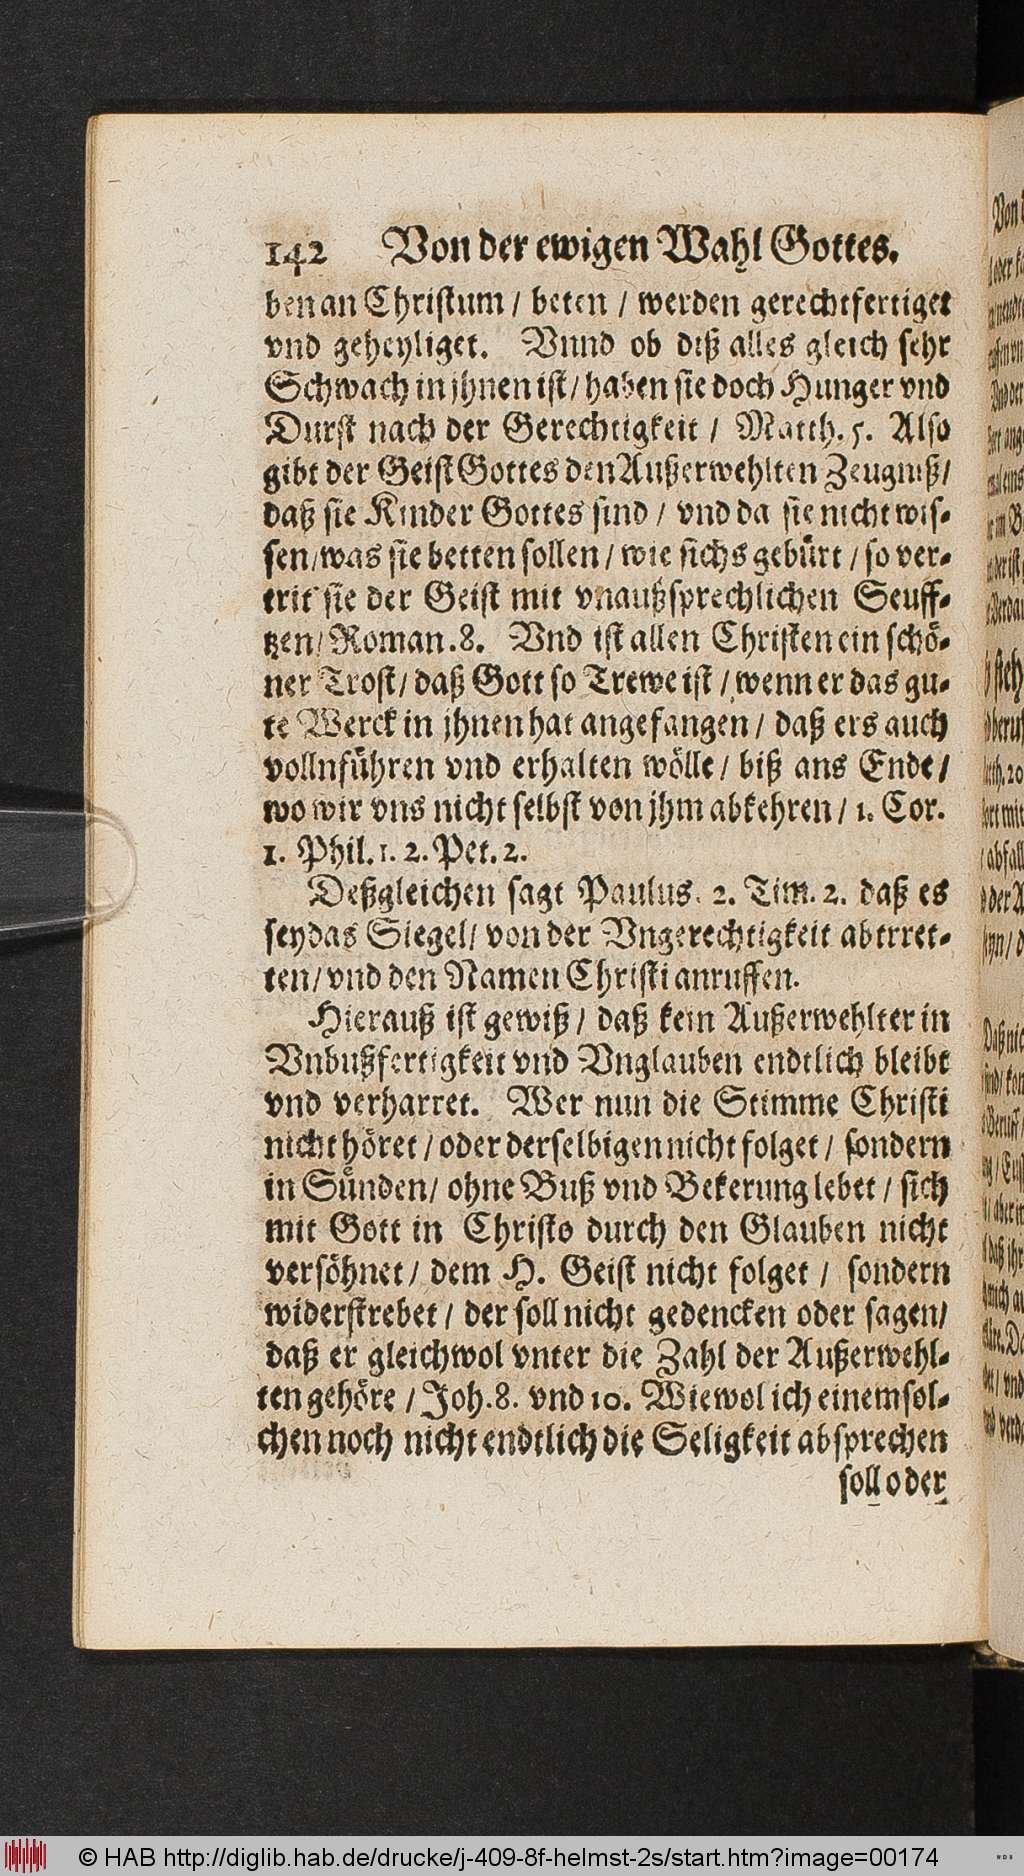 142 Von der ewigen Wahl Gottes.
ben an Christum / beten / werden gerechtfertiget
vnd geheyliget. Vnnd ob diß alles gleich sehr
Schwach in jhnen ist / haben sie doch Hunger vnd
Durst nach der Gerechtigkeit / Matth. 5. Also
gibt der Geist Gottes den Außerwehlten Zeugniß /
daß sie Kinder Gottes sind / vnd da sie nicht wis-
sen / was sie betten sollen / wie sichs gebürt / so ver-
trit sie der Geist mit vnaußsprechlichen Seuff-
tzen / Roman. 8. Vnd ist allen Christen ein schö-
ner Trost / daß Gott so Trewe ist / wenn er das gu-
te Werck in jhnen hat angefangen / daß ers auch
vollnführen vnd erhalten wölle / biß ans Ende /
wo wir vns nicht selbst von jhm abkehren / 1. Cor.
1. Phil. 1. 2. Pet. 2.
Deßgleichen sagt Paulus. 2. Tim. 2. daß es
sey das Siegel / von der Vngerechtigkeit abtrret-
ten / vnd den Namen Christi anruffen.
Hierauß ist gewiß / daß kein Außerwehlter in
Vnbußfertigkeit vnd Vnglauben endtlich bleibt
vnd verharret. Wer nun die Stimme Christi
nicht höret / oder derselbigen nicht folget / sondern
in Sünden / ohne Buß vnd Bekerung lebet / sich
mit Gott in Christo durch den Glauben nicht
versöhnet / dem H. Geist nicht folget / sondern
widerstrebet / der soll nicht gedencken oder sagen /
daß er gleichwol vnter die Zahl der Außerwehl-
ten gehöre / Joh. 8. vnd 10. Wiewol ich einem sol-
chen noch nicht endtlich die Seligkeit absprechen
soll oder
© HAB http://diglib.hab.de/drucke/j-409-8f-helmst-2s/start.htm?image=00174